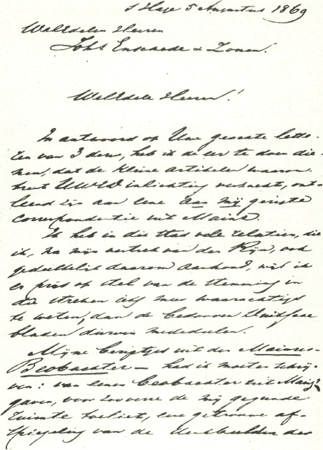 's Hage 5 Augustus 1869
WelEdelen Heeren
Johs Enschede & Zonen!
WelEdele Heeren!
In antwoord op Uwe geëerde lette-
ren van 3 dezer, heb ik de eer te doen die-
nen, dat de kleine artikelen waarom-
trent UWEd inlichting verzoekt, ont-
leend zijn aan eene aan mij gerigte
correspondentie uit Mainz
Ik heb in die stad vele relatien, die
ik, na mijn vertrek van den Rijn, ook
gedeeltelijk daarom aanhoud, wijl ik
er prijs op stel van de stemming in
die streken iets meer waarachtigs
te weten, dan de Duitsche
bladen mededeelen.
Mijne uit den Mainzer
Beobachter — had ik moeten schrij-
ven: van eenen Beobachter uit Mainz
gaven, voor zooverre de mij gegunde
ruimte toeliet, eene getrouwe af-
spiegeling van de denkbeelden der